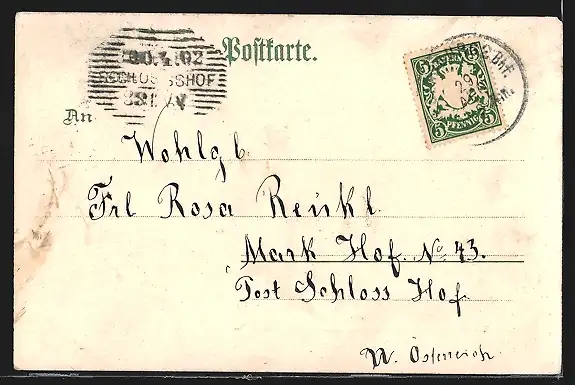 Postkarte.
SCHLOSSHOF
BAYERN
5 5
5 PFENNIG 5
An
Wohlgb.
Frl Rosa Renkl
Mark Hof. No 43.
Post Schloss Hof
N. Österreich